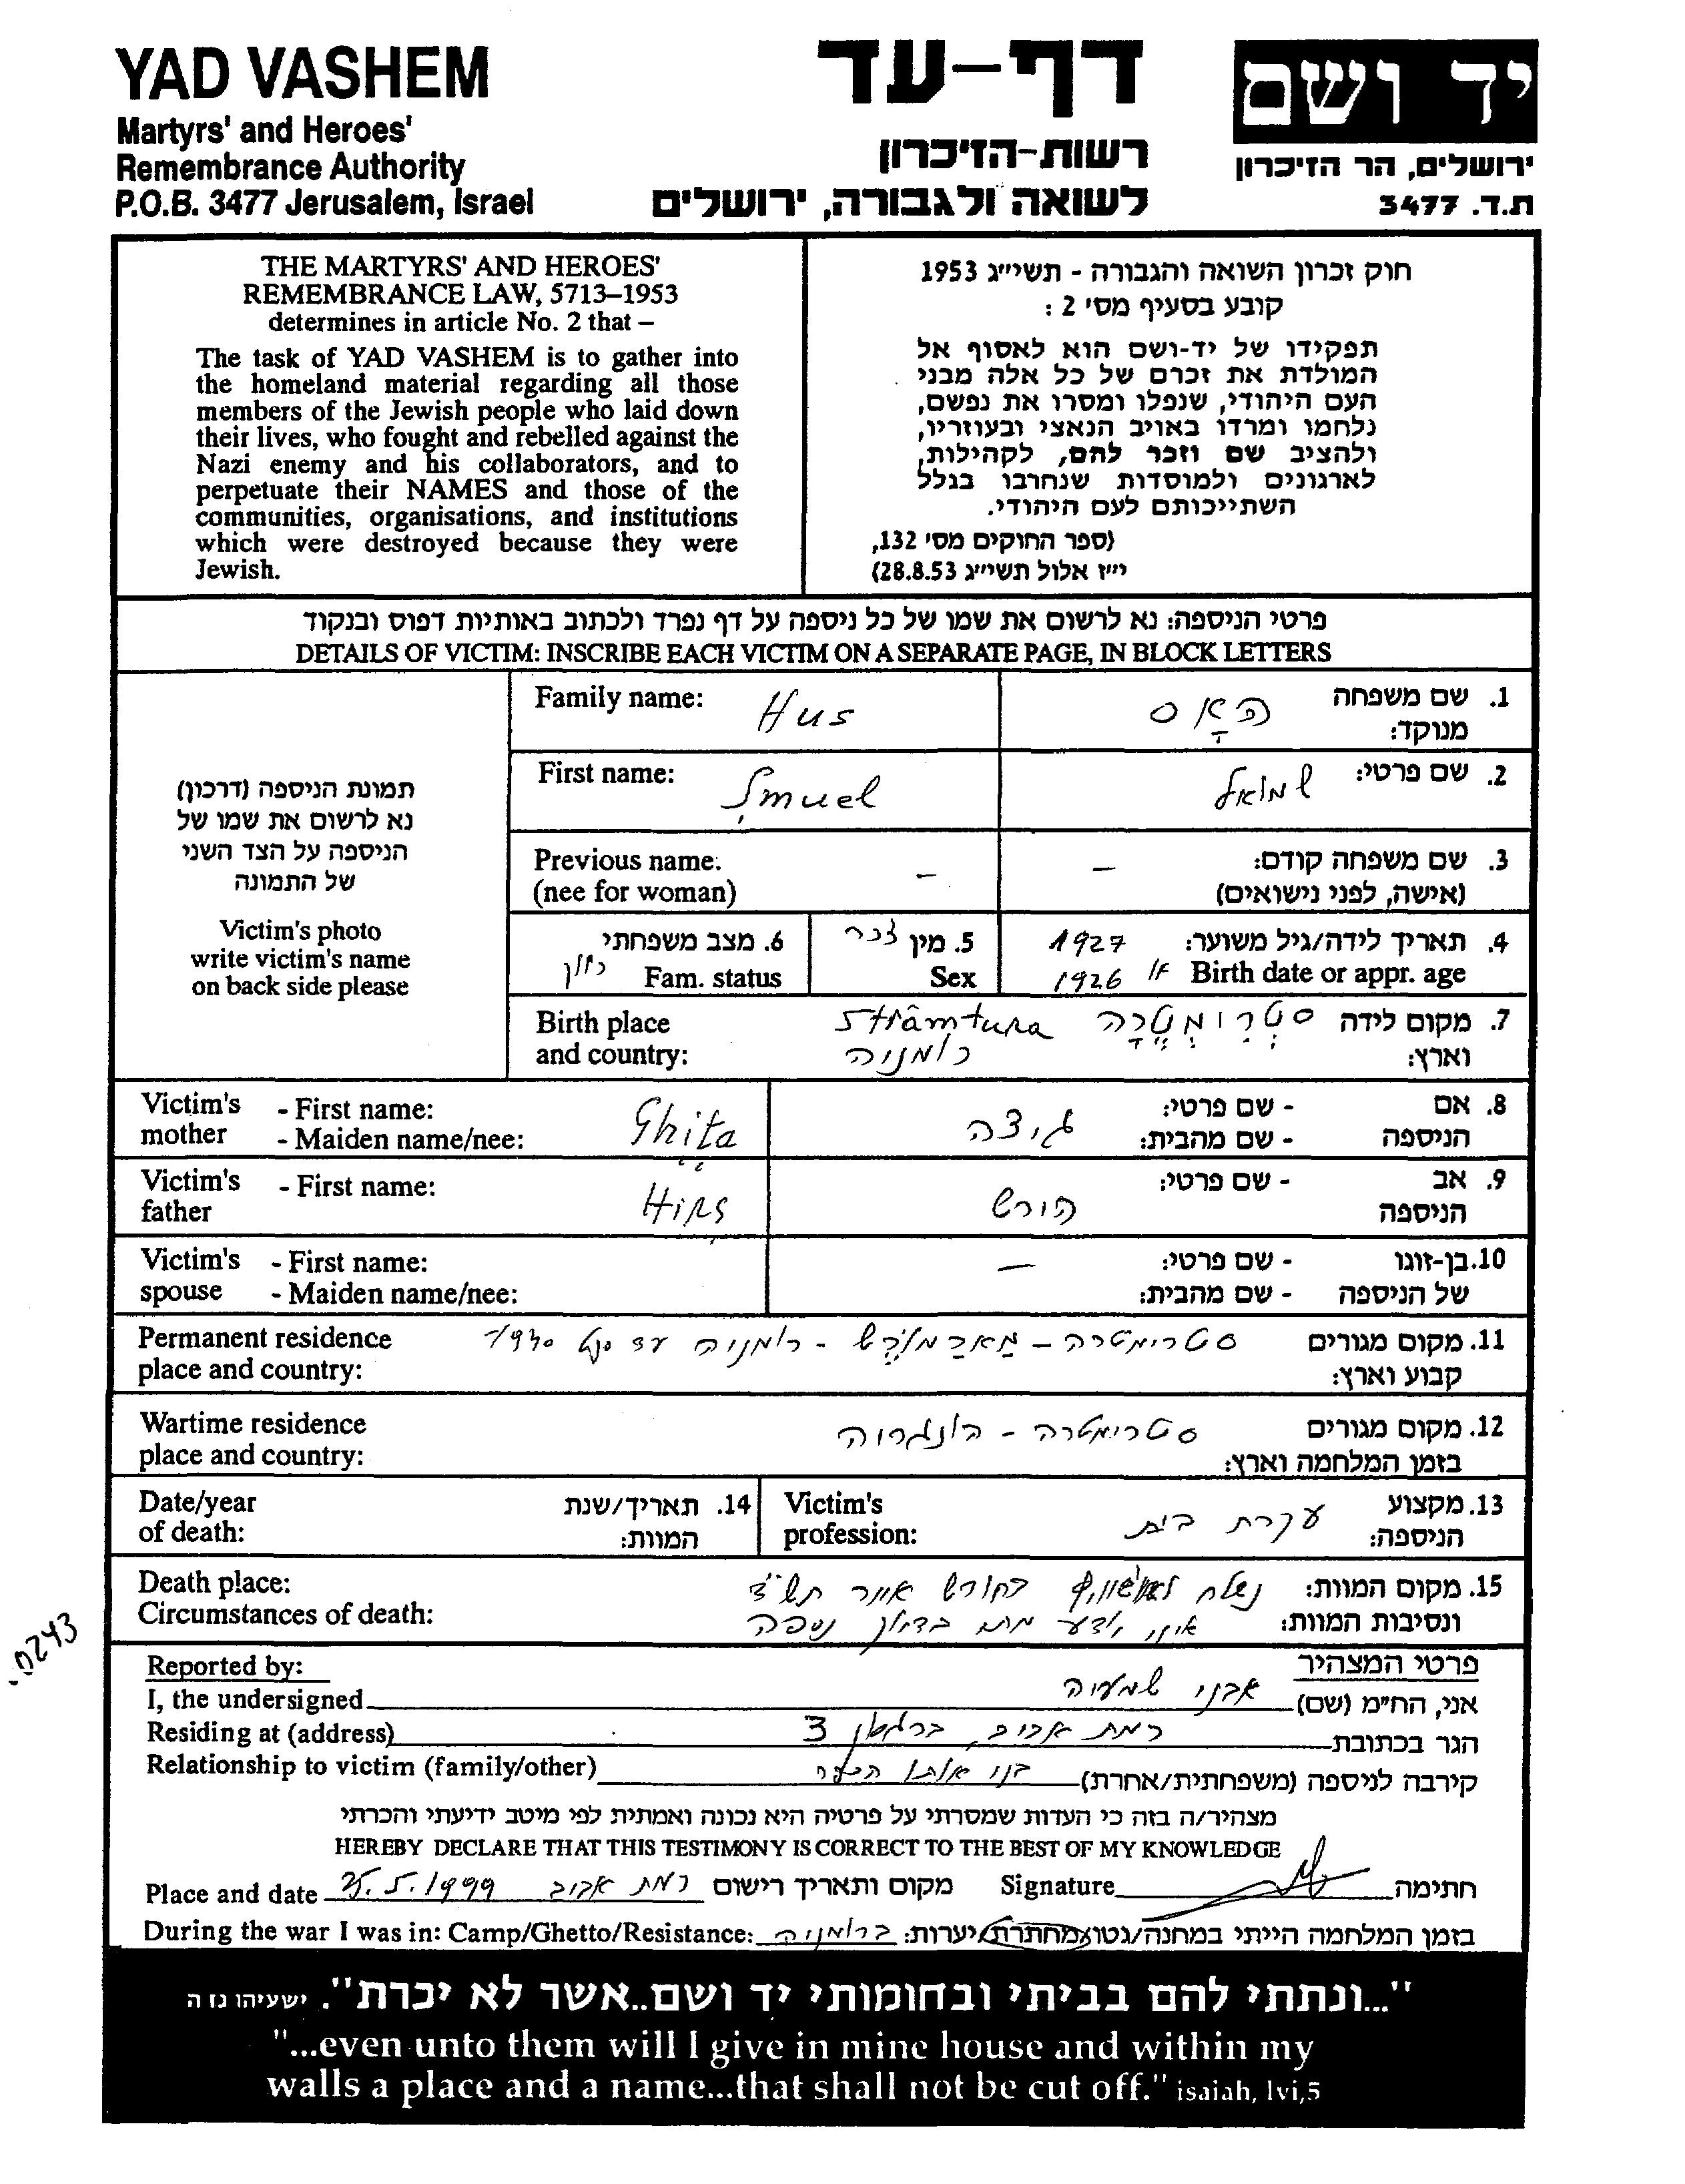 YAD VASHEM
Martyrs' and Heroes'
Remembrance Authority
P.O.B. 3477 Jerusalem, Israel
דף-עד
רשות-הזיכרון
לשואה ולגבורה, ירושלים
יד ושם
ירושלים, הר הזיכרון
ת.ד. 3477
THE MARTYRS' AND HEROES'
REMEMBRANCE LAW, 5713–1953
determines in article No. 2 that –
The task of YAD VASHEM is to gather into
the homeland material regarding all those
members of the Jewish people who laid down
their lives, who fought and rebelled against the
Nazi enemy and his collaborators, and to
perpetuate their NAMES and those of the
communities, organisations, and institutions
which were destroyed because they were
Jewish.
חוק זכרון השואה והגבורה - תשי״ג 1953
קובע בסעיף מס׳ 2 :
תפקידו של יד-ושם הוא לאסוף אל
המולדת את זכרם של כל אלה מבני
העם היהודי, שנפלו ומסרו את נפשם,
נלחמו ומרדו באויב הנאצי ובעוזריו,
ולהציב שם וזכר להם, לקהילות,
לארגונים ולמוסדות שנחרבו בגלל
השתייכותם לעם היהודי.
(ספר החוקים מס׳ 132,
י״ז אלול תשי״ג 28.8.53)
פרטי הניספה: נא לרשום את שמו של כל ניספה על דף נפרד ולכתוב באותיות דפוס ובנקוד
DETAILS OF VICTIM: INSCRIBE EACH VICTIM ON A SEPARATE PAGE, IN BLOCK LETTERS
תמונת הניספה (דרכון)
נא לרשום את שמו של
הניספה על הצד השני
של התמונה
Victim's photo
write victim's name
on back side please
Family name: Hus האָס 1. שם משפחה
מנוקד:
First name: Șmuel שמואל 2. שם פרטי:
Previous name. – – 3. שם משפחה קודם:
(nee for woman) (אישה, לפני נישואים)
6. מצב משפחתי 5. מין זכר 1927 4. תאריך לידה/גיל משוער:
Fam. status Sex 1926 Birth date or appr. age
Birth place Strâmtura סטרומטרה 7. מקום לידה
and country: רומניה וארץ:
Victim's - First name: Ghița גיצה - שם פרטי: 8. אם
mother - Maiden name/nee: - שם מהבית: הניספה
Victim's - First name: Hirș הירש - שם פרטי: 9. אב
father הניספה
Victim's - First name: – - שם פרטי: 10. בן-זוגו
spouse - Maiden name/nee: - שם מהבית: של הניספה
Permanent residence סטרימטרה - מאראמורש - רומניה עד 1940 11. מקום מגורים
place and country: קבוע וארץ:
Wartime residence סטרימטרה - הונגריה 12. מקום מגורים
place and country: בזמן המלחמה וארץ:
Date/year 14. תאריך/שנת
of death: המוות:
Victim's עקרת בית 13. מקצוע
profession: הניספה:
Death place: נשלח לאושוויץ בחודש אייר תש״ד 15. מקום המוות:
Circumstances of death: אינני יודע מתי בדיוק נספה ונסיבות המוות:
.0243
Reported by: פרטי המצהיר
I, the undersigned אבני שמעיה אני, הח״מ (שם)
Residing at (address) רמת אביב, ברגסון 3 הגר בכתובת
Relationship to victim (family/other) קירבה לניספה (משפחתית/אחרת)
מצהיר/ה בזה כי העדות שמסרתי על פרטיה היא נכונה ואמתית לפי מיטב ידיעתי והכרתי
HEREBY DECLARE THAT THIS TESTIMONY IS CORRECT TO THE BEST OF MY KNOWLEDGE
Place and date 25.5.1999 רמת אביב מקום ותאריך רישום Signature חתימה
During the war I was in: Camp/Ghetto/Resistance: ברומניה בזמן המלחמה הייתי במחנה/גטו/מחתרת/יערות:
"...ונתתי להם בביתי ובחומותי יד ושם..אשר לא יכרת". ישעיהו נו ה
"...even unto them will I give in mine house and within my
walls a place and a name...that shall not be cut off." isaiah, lvi,5